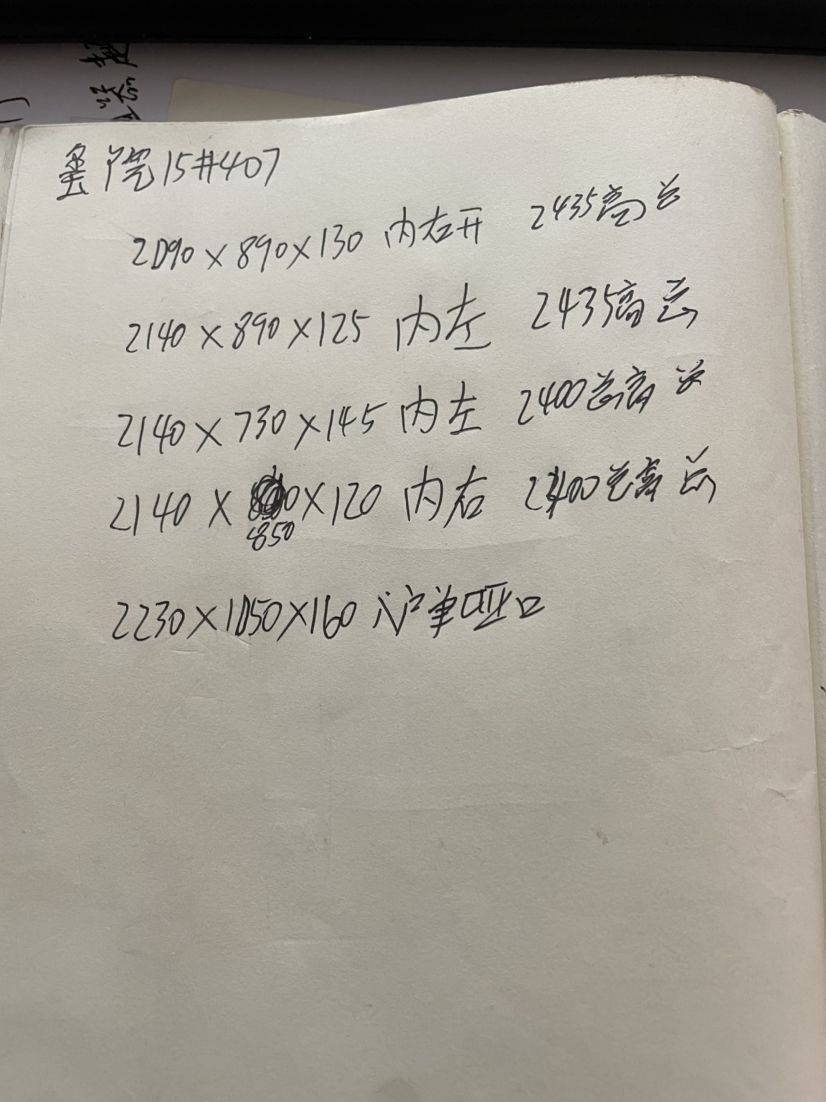 院15#407
2090×890×130 内右开 2435高
2140×890×125 内左 2435高
2140×730×145 内左 2400总高
2140×850×120 内右 2400总高
2230×1050×160 入户单哑口